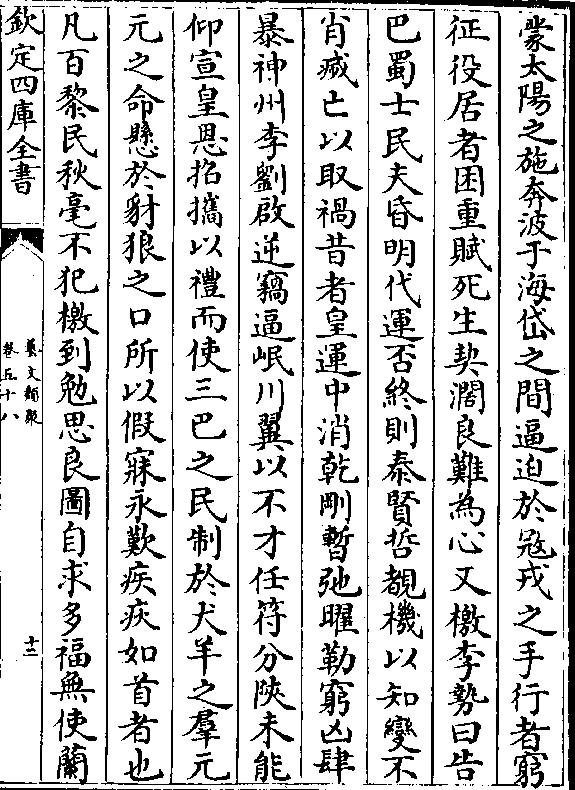 蒙太陽之施奔波于海岱之間逼迫於冦戎之手行者窮
征役居者困重賦死生契濶良難為心又檄李勢曰告
巴蜀士民夫昏明代運否終則泰賢哲覩機以知變不
肖臧亡以取禍昔者皇運中消乾剛暫弛曜勒窮凶肆
暴神州李劉啟逆竊逼岷川翼以不才任符分陜未能
仰宣皇恩招攜以禮而使三巴之民制於犬羊之羣元
元之命懸於豺狼之口所以假寐永歎疾疢如首者也
凡百黎民秋毫不犯檄到勉思良圖自求多福無使蘭
欽定四庫全書
藝文類聚
卷五十八
十三